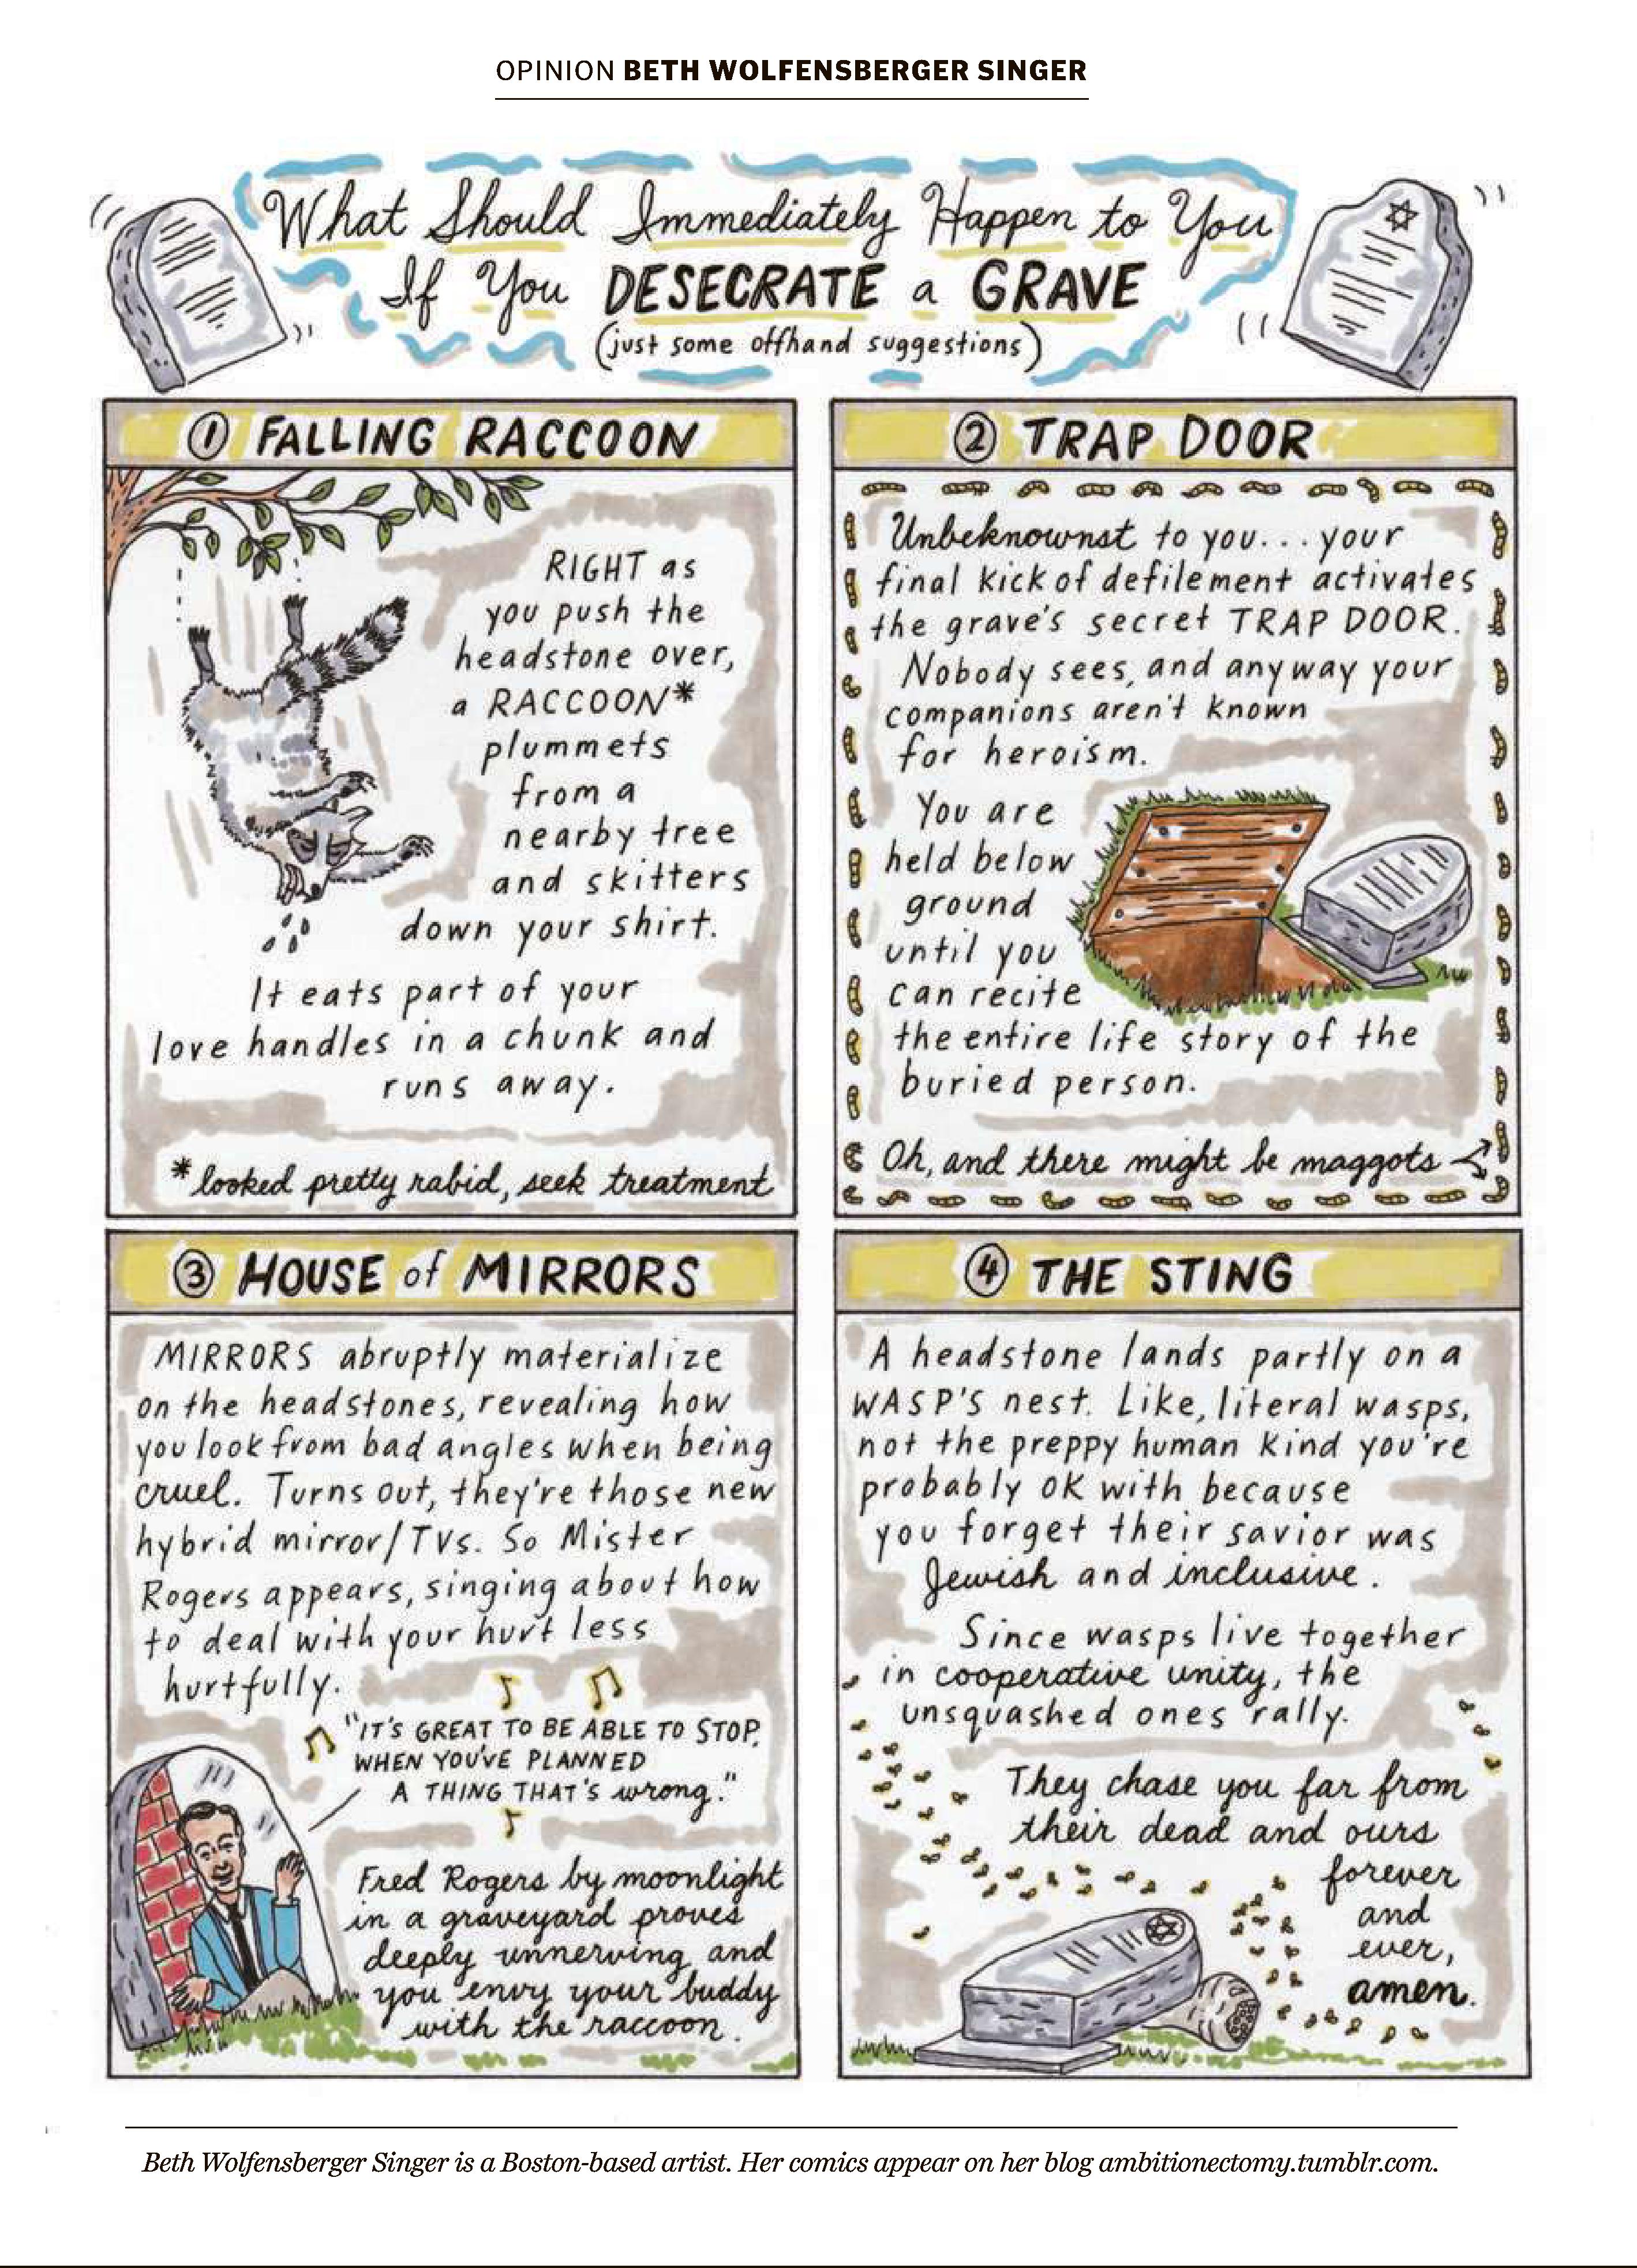 OPINION BETH WOLFENSBERGER SINGER
What Should Immediately Happen to You
If You DESECRATE a GRAVE
(just some offhand suggestions)
1 FALLING RACCOON
RIGHT as
you push the
headstone over,
a RACCOON*
plummets
from a
nearby tree
and skitters
down your shirt.
It eats part of your
love handles in a chunk and
runs away.
*looked pretty rabid, seek treatment
2 TRAP DOOR
Unbeknownst to you... your
final kick of defilement activates
the grave's secret TRAP DOOR.
Nobody sees, and anyway your
companions aren't known
for heroism.
You are
held below
ground
until you
can recite
the entire life story of the
buried person.
Oh, and there might be maggots
3 HOUSE of MIRRORS
MIRRORS abruptly materialize
on the headstones, revealing how
you look from bad angles when being
cruel. Turns out, they're those new
hybrid mirror/TVs. So Mister
Rogers appears, singing about how
to deal with your hurt less
hurtfully.
"IT'S GREAT TO BE ABLE TO STOP,
WHEN YOU'VE PLANNED
A THING THAT'S wrong."
Fred Rogers by moonlight
in a graveyard proves
deeply unnerving, and
you envy your buddy
with the raccoon.
4 THE STING
A headstone lands partly on a
WASP'S nest. Like, literal wasps,
not the preppy human kind you're
probably OK with because
you forget their savior was
Jewish and inclusive.
Since wasps live together
in cooperative unity, the
unsquashed ones rally.
They chase you far from
their dead and ours
forever
and
ever,
amen.
Beth Wolfensberger Singer is a Boston-based artist. Her comics appear on her blog ambitionectomy.tumblr.com.